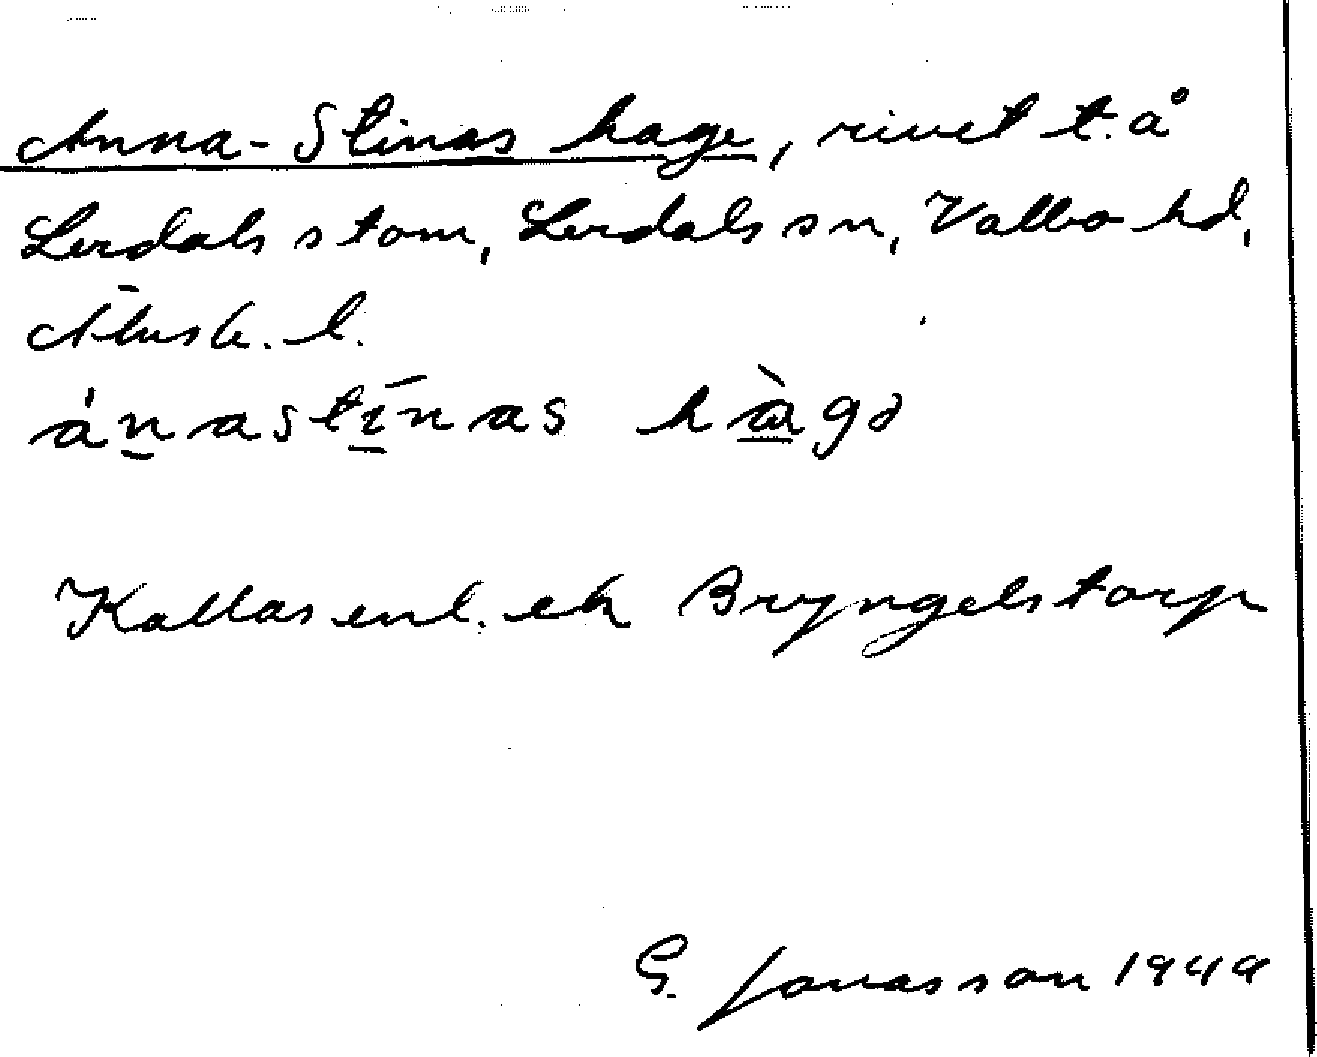 Anna-Stinas hage, rivet t. å
Lerdals stom, Lerdals sn, Valbo hd,
Älvsb. l.
ánastīnas hàgə
Kallas enl. ek Bryngelstorp
G. Jonasson 1949